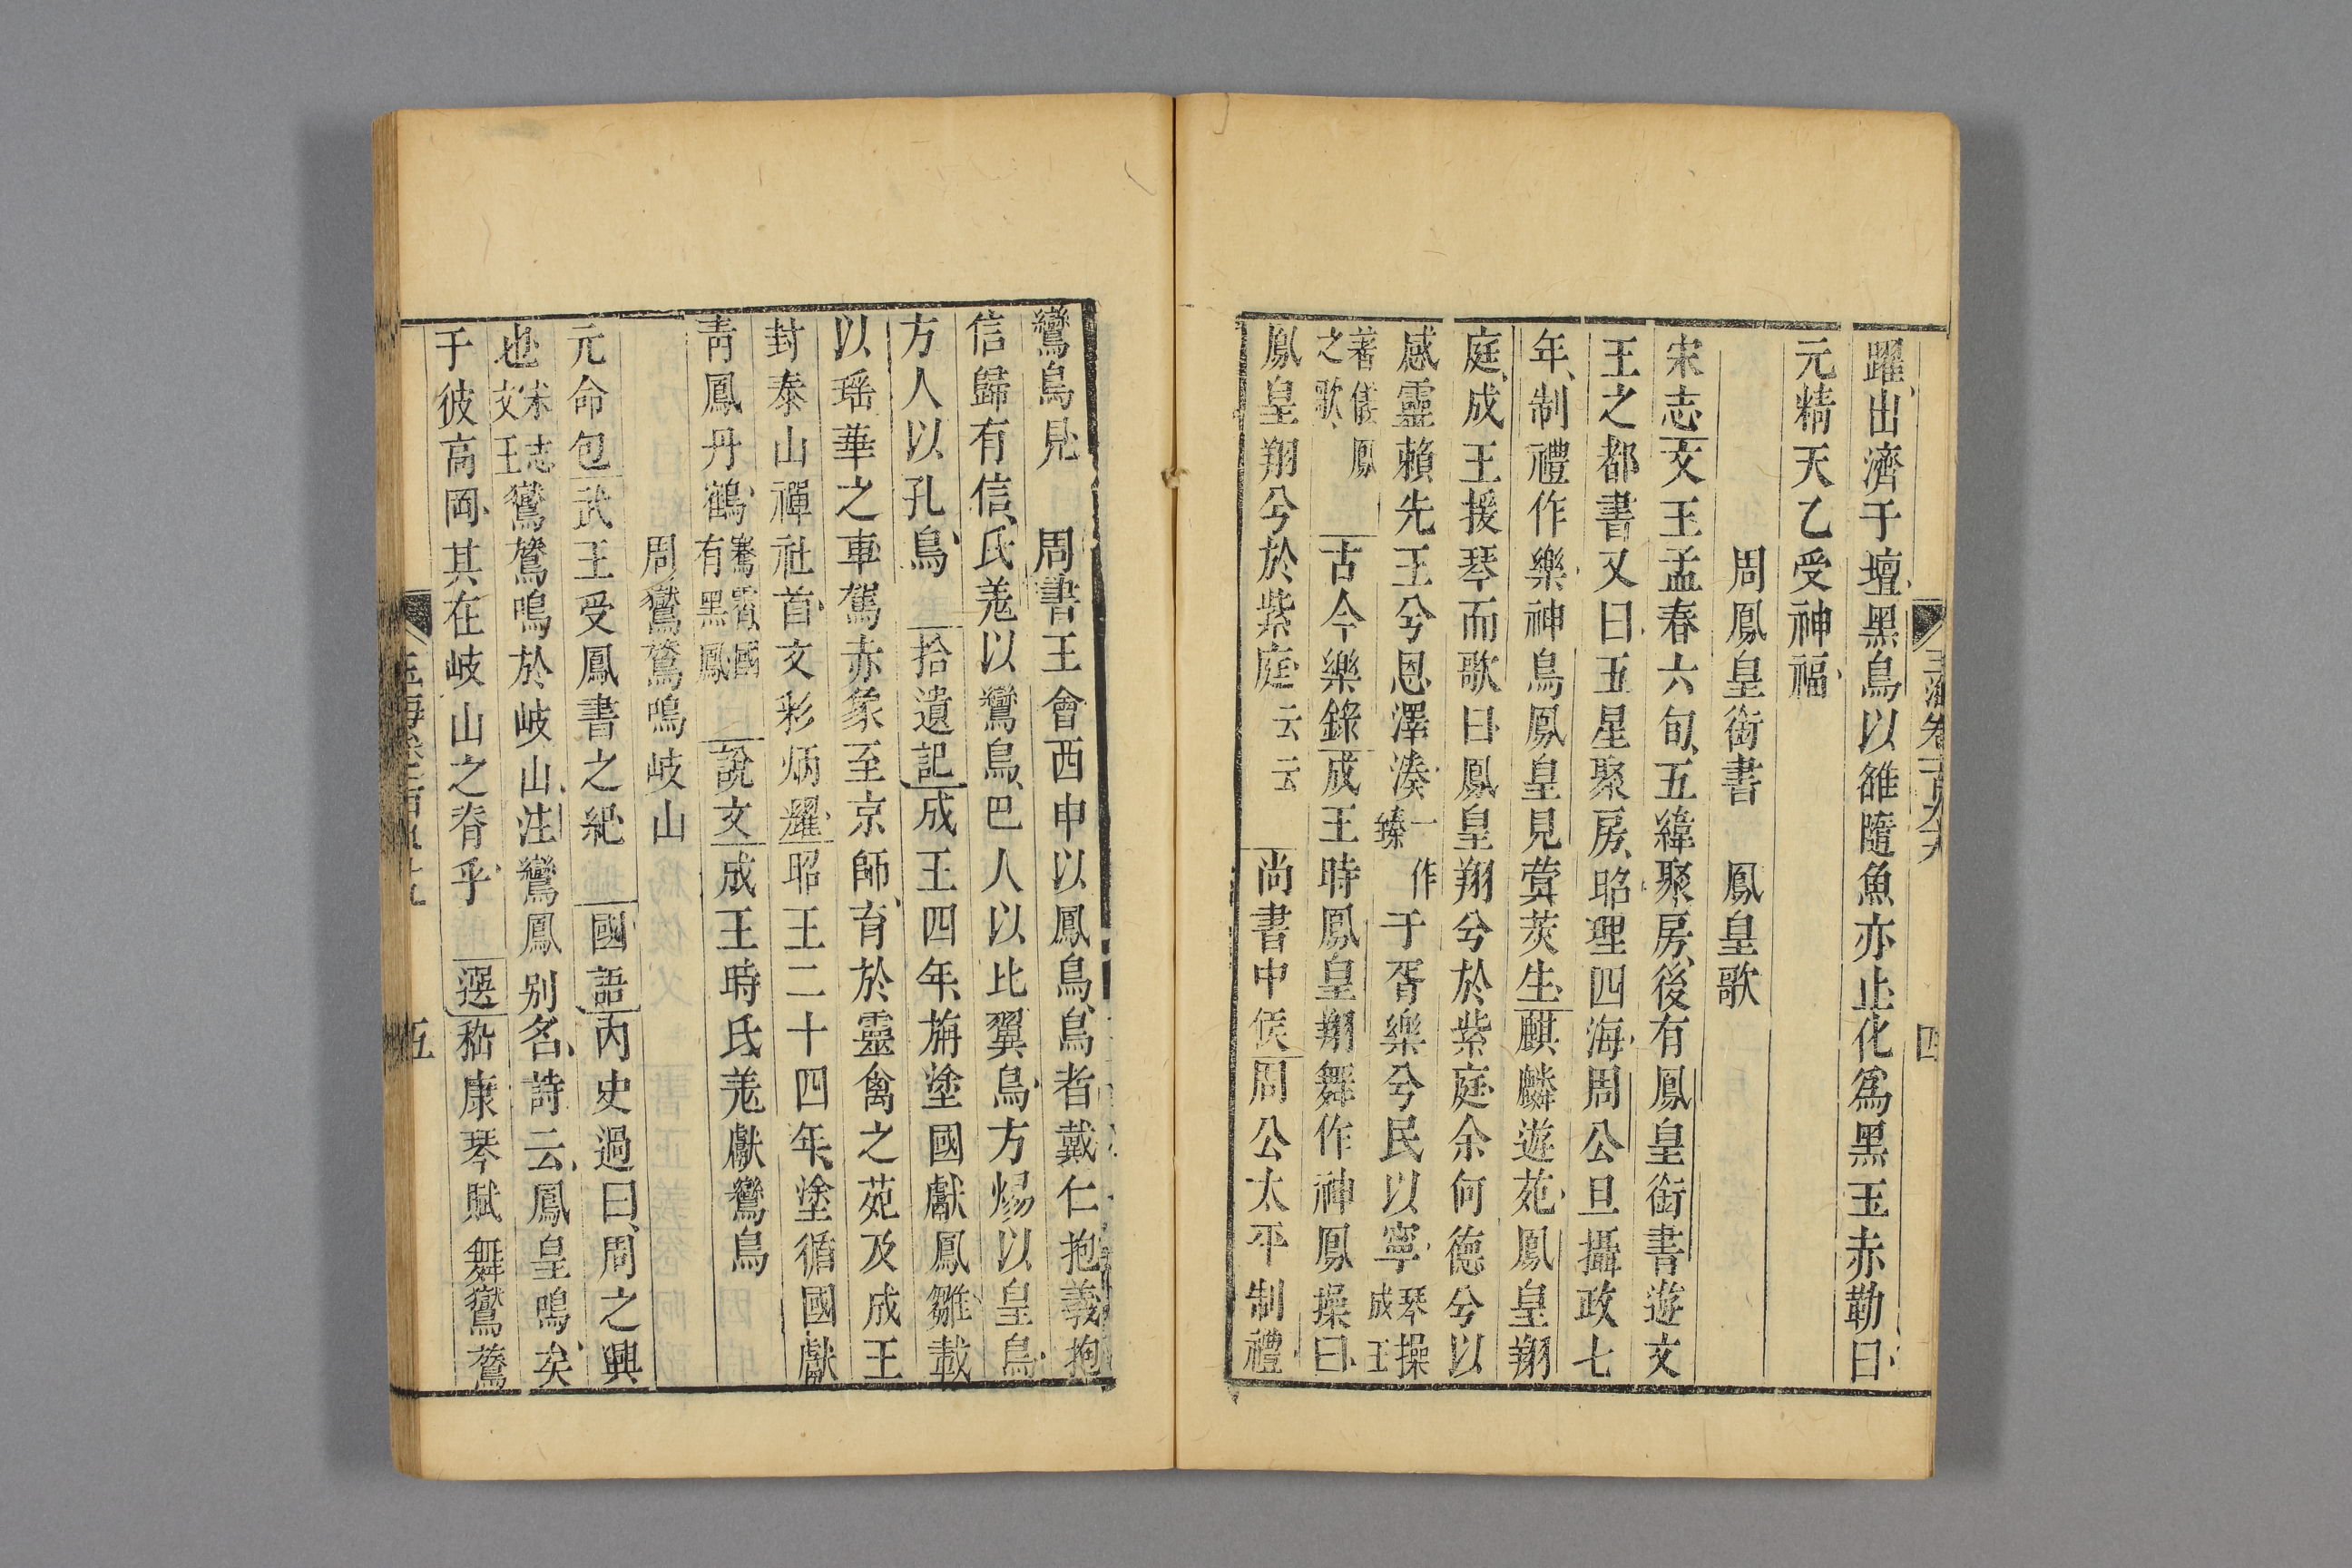 躍出濟于壇黑鳥以雒隨魚亦止化爲黑玉赤勒曰
元精天乙受神福
周鳳皇銜書　鳳皇歌
宋志文王孟春六旬五緯聚房後有鳳皇銜書遊文
王之都書又曰五星聚房昭理四海周公旦攝政七
年制禮作樂神鳥鳳皇見蓂莢生麒麟遊苑鳳皇翔
庭成王援琴而歌曰鳳皇翔兮於紫庭余何德兮以
感靈賴先王兮恩澤湊一作臻于胥樂兮民以寧琴操成王
著儀鳳之歌　古今樂錄成王時鳳皇翔舞作神鳳操曰
鳳皇翔兮於紫庭云云　尚書中侯周公太平制禮
鸞鳥見　周書王會西申以鳳鳥鳥者戴仁抱義掬
信歸有信氐羗以鸞鳥巴人以比翼鳥方煬以皇鳥
方人以孔鳥　拾遺記成王四年旃塗國獻鳳雛載
以瑶華之車駕赤象至京師育於靈禽之苑及成王
封泰山禪社首文彩炳燿昭王二十四年塗循國獻
青鳳丹鵲騫霄國有黑鳳　說文成王時氐羗獻鸞鳥
周鸑鷟鳴岐山
元命包武王受鳳書之紀　國語内史過曰周之興
也宋志文王鸑鷟鳴於岐山注鸞鳳别名詩云鳳皇鳴矣
于彼高岡其在岐山之脊乎　選嵇康琴賦舞鸑鷟
四
五